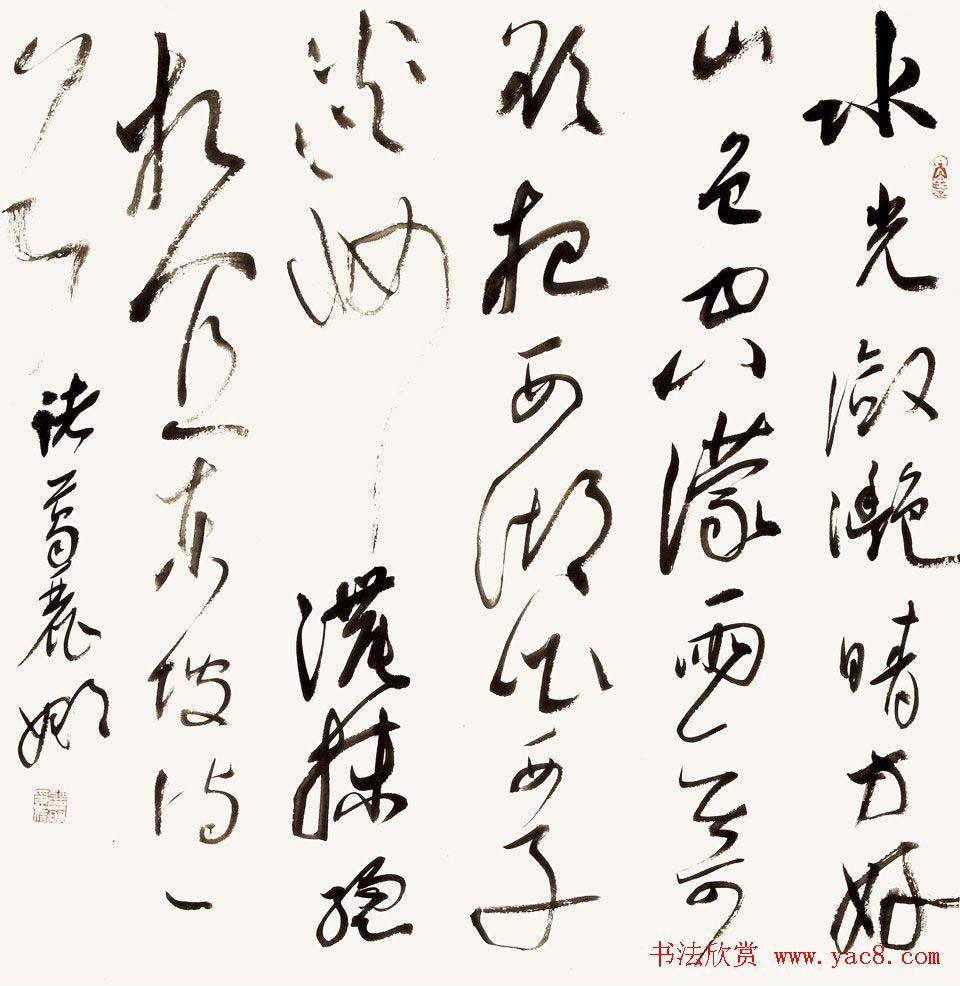 水光潋灔晴方好
山色空濛雨亦奇
欲把西湖比西子
淡妝濃抹總
相宜东坡诗一
首
诸葛麗娜
书法欣赏 www.yac8.com